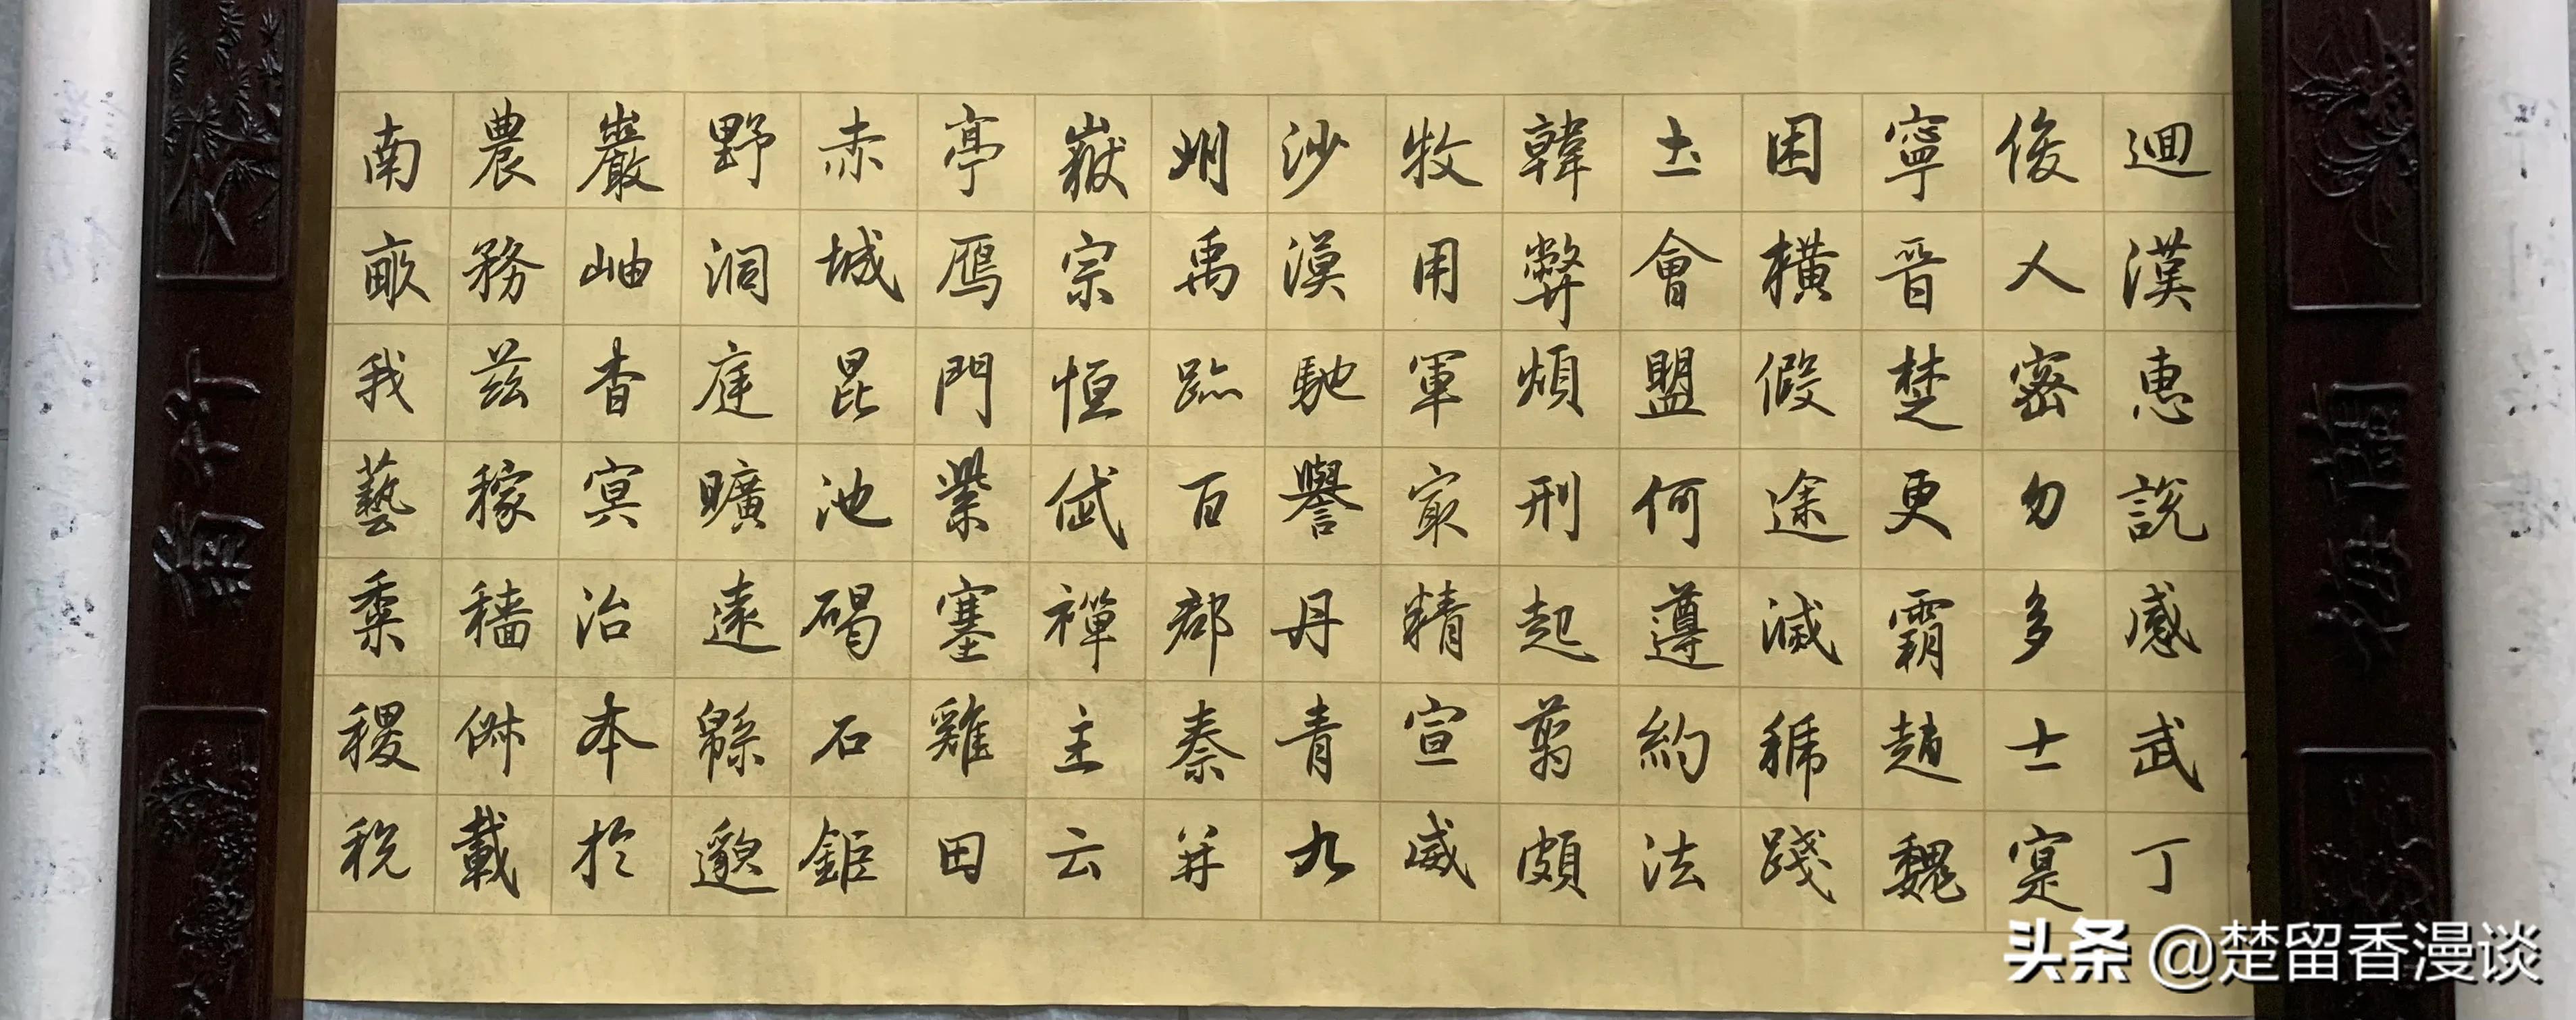 迴漢惠說感武丁
俊乂密勿多士寔
寧晉楚更霸趙魏
困橫假途滅虢踐
土會盟何遵約法
韓弊煩刑起翦頗
牧用軍冣精宣威
沙漠馳譽丹青九
州禹跡百郡秦并
嶽宗恒岱禪主云
亭鴈門紫塞雞田
赤城昆池碣石鉅
野洞庭曠遠緜邈
巖岫杳冥治本於
農務茲稼穡俶載
南畝我藝黍稷稅
蘭
梅
竹
菊
头条 @楚留香漫谈